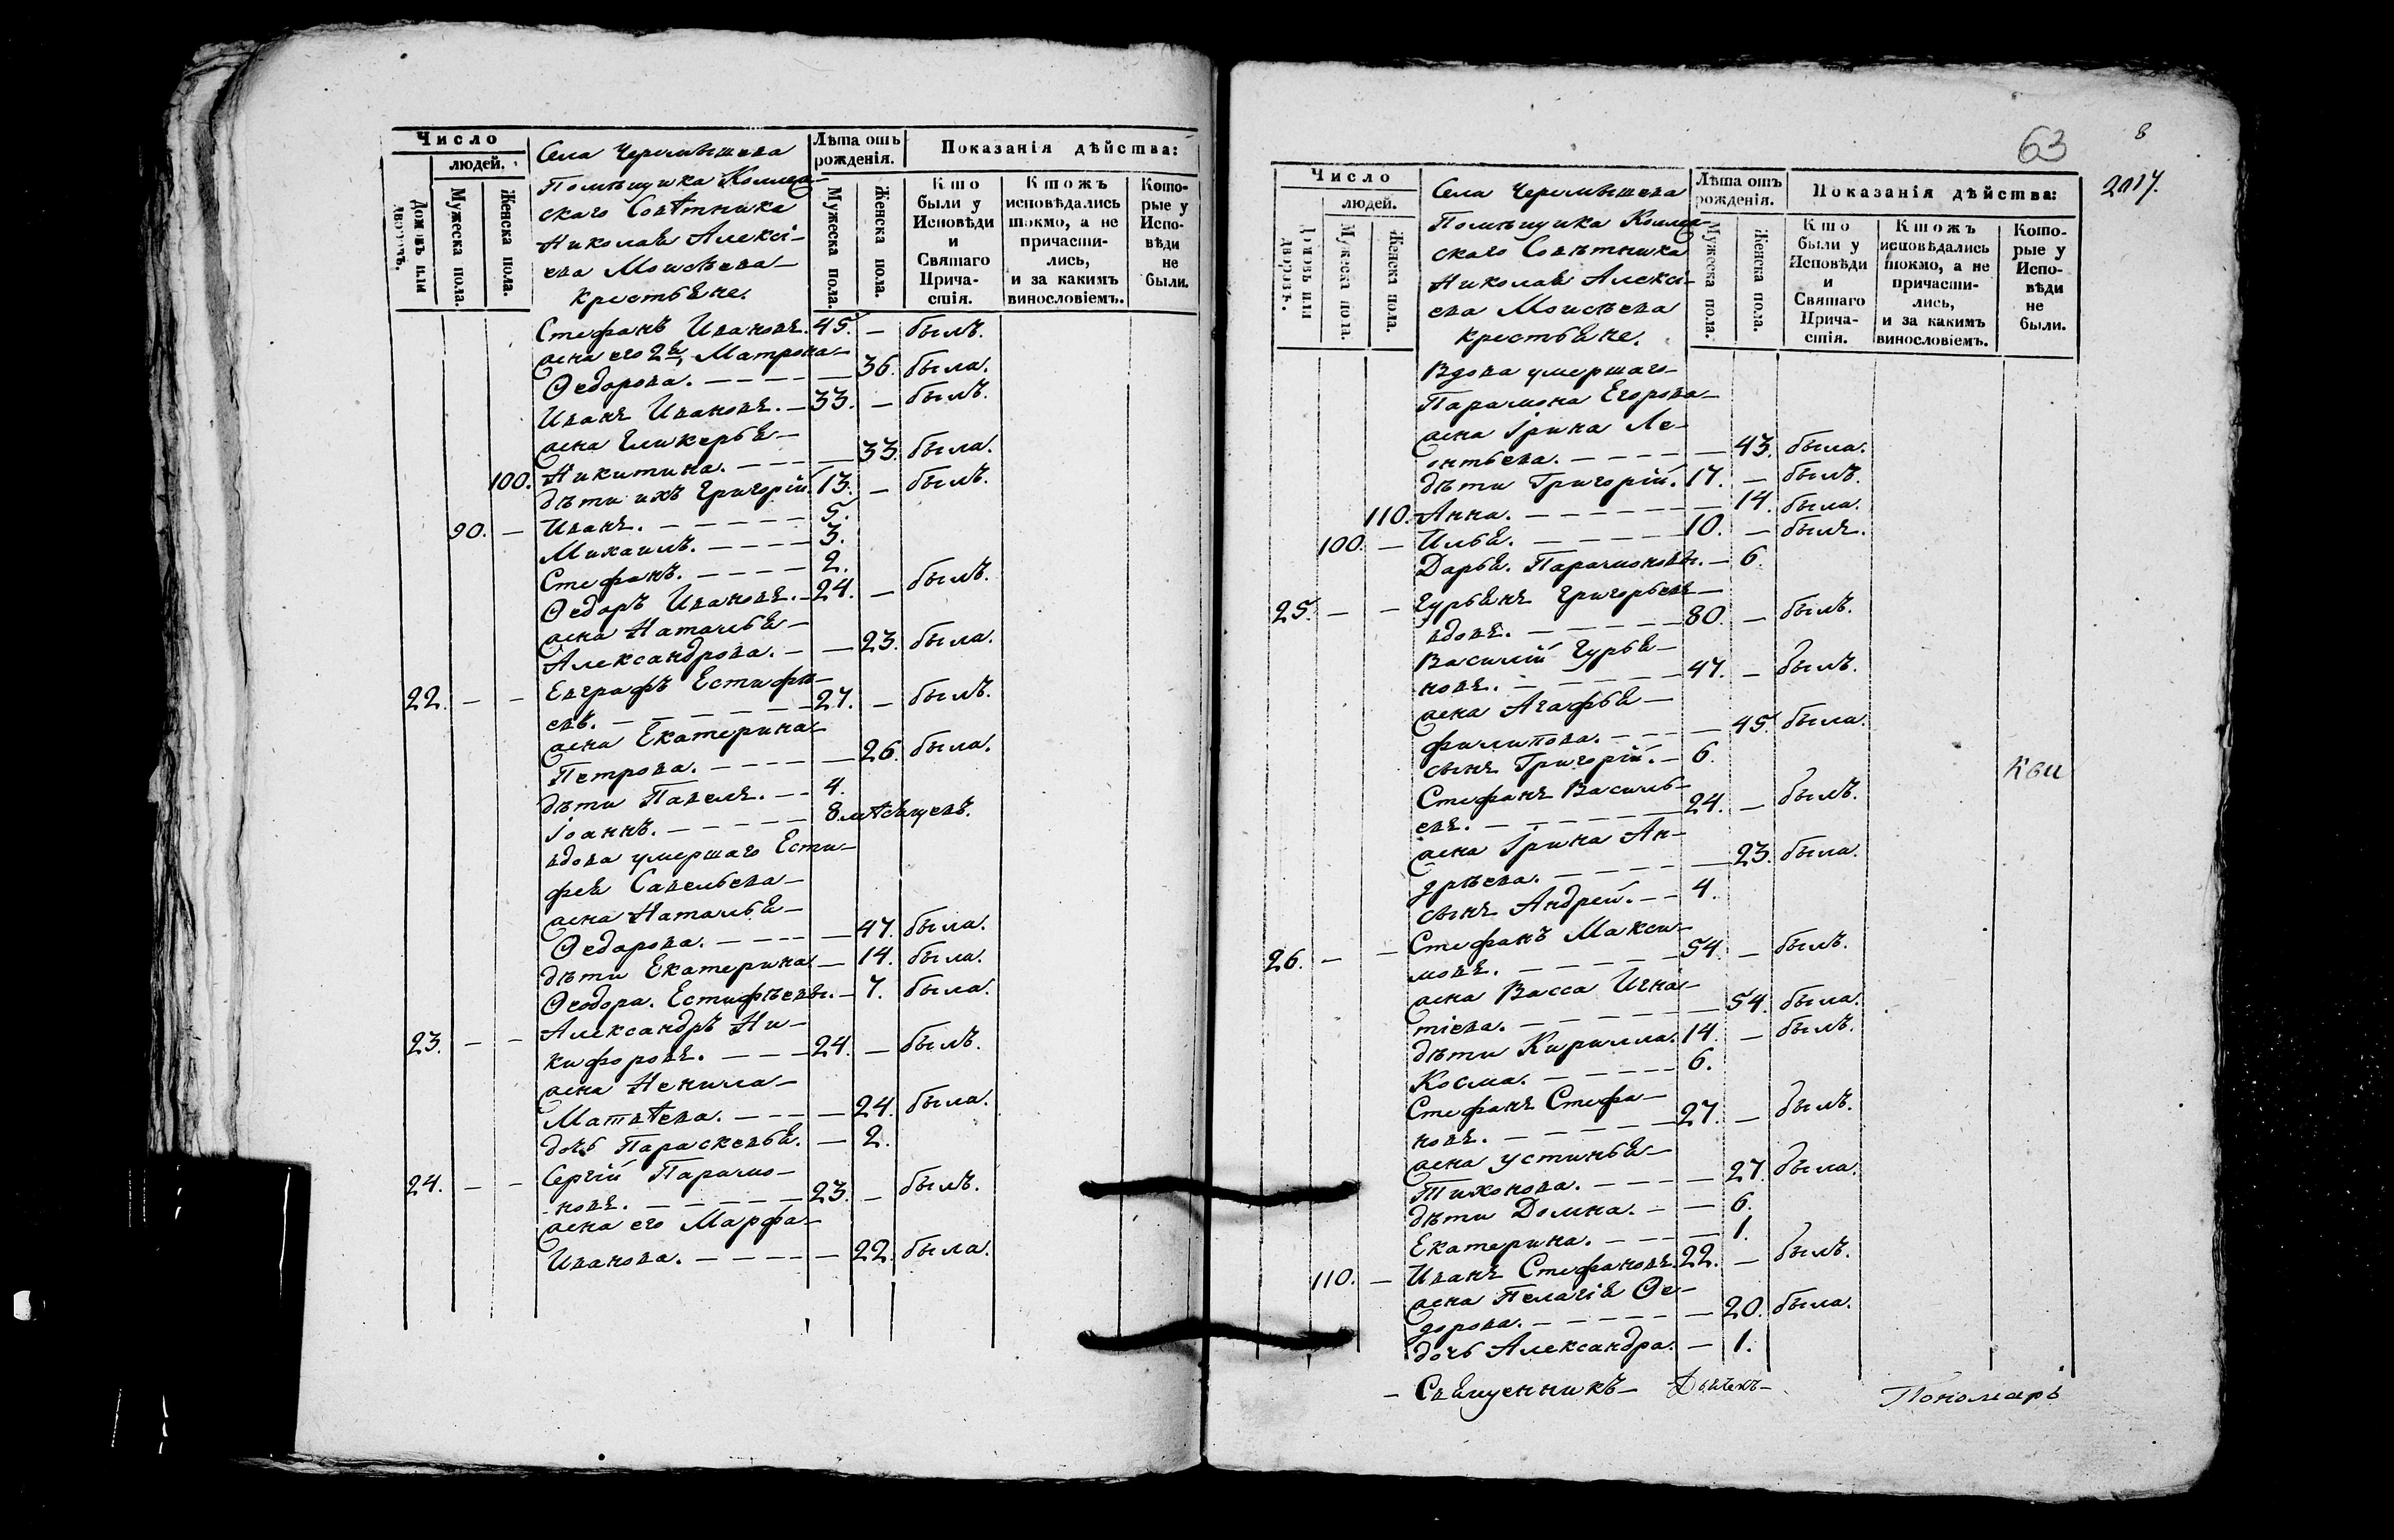 Число
людей.
Домовъ или дворовъ.
Мужеска пола.
Женска пола.
Села Черемышева
Помѣщика Коллеж-
скаго Совѣтника
Николая Алексі-
ева Моисѣева
крестьяне.
Лѣта отъ рожденія.
Мужеска пола.
Женска пола.
Показанія дѣйства:
Кто были у Исповѣди и Святаго Причастія.
Ктожъ исповѣдались токмо, а не причастились, и за какимъ винословіемъ.
Которые у Исповѣди не были.
Стефанъ Ивановъ. 45. — былъ.
жена его 2я, Матрона
Ѳедорова. — 36. была.
Иванъ Ивановъ. — 33. — былъ.
жена Гликерья
100. Никитина. — 33. была.
дѣти ихъ Григорій. 13. — былъ.
90. — Иванъ. — 5.
Михаилъ. — 3.
Стефанъ. — 2.
Ѳедоръ Ивановъ. — 24. — былъ.
жена Наталья
Александрова. — 23. была.
22. — — Евграфъ Естифѣ-
евъ. — 27. — былъ.
жена Екатерина
Петрова. — 26. была.
дѣти Павелъ. — 4.
Іоаннъ. — 8. мѣсяцевъ.
вдова умершаго Ести-
фея Савельева
жена Наталья
Ѳедорова. — 47. была.
дѣти Екатерина — 14. была.
Ѳеодора. Естифѣевы. — 7. была.
23. — — Александръ Ни-
кифоровъ. — 24. — былъ.
жена Ненила
Матвѣева. — 24. была.
дочь Параскевья. — 2.
24. — — Сергій Парамо-
новъ. — 23. — былъ.
жена его Марфа
Иванова. — 22. была.
63
8
2017.
Число
людей.
Домовъ или дворовъ.
Мужеска пола.
Женска пола.
Села Черемышева
Помѣщика Коллеж-
скаго Совѣтника
Николая Алексі-
ева Моисѣева
крестьяне.
Лѣта отъ рожденія.
Мужеска пола.
Женска пола.
Показанія дѣйства:
Кто были у Исповѣди и Святаго Причастія.
Ктожъ исповѣдались токмо, а не причастились, и за какимъ винословіемъ.
Которые у Исповѣди не были.
Вдова умершаго
Парамона Егорова
жена Ірина Ле-
онтьева. — 43. была.
дѣти Григорій. 17. — былъ.
110. Анна. — 14. была.
100. — Илья. — 10. — былъ.
Дарья. Парамоновы. — 6.
25. — — Гурьянъ Григорьевъ
вдовъ. — 80. — былъ.
Василій Гурья-
новъ. — 47. — былъ.
жена Агафья
Филипова. — 45. была.
сынъ Григорій. — 6.
Стефанъ Василь-
евъ. — 24. — былъ.
жена Ірина Ан-
дрѣева. — 23. была.
сынъ Андрей. — 4.
26. — — Стефанъ Макси-
мовъ. — 54. — былъ.
жена Васса Игна-
тіева. — 54. была.
дѣти Кирилла. 14. — былъ.
Косма. — 6.
Стефанъ Стефа-
новъ. — 27. — былъ.
жена Устинья
Тихонова. — 27. была.
дѣти Домна. — 6.
Екатерина. — 1.
110. — Иванъ Стефановъ. 22. — былъ.
жена Пелагія Ѳе-
дорова. — 20. была.
дочь Александра. — 1.
— Священникъ —
Пономарь